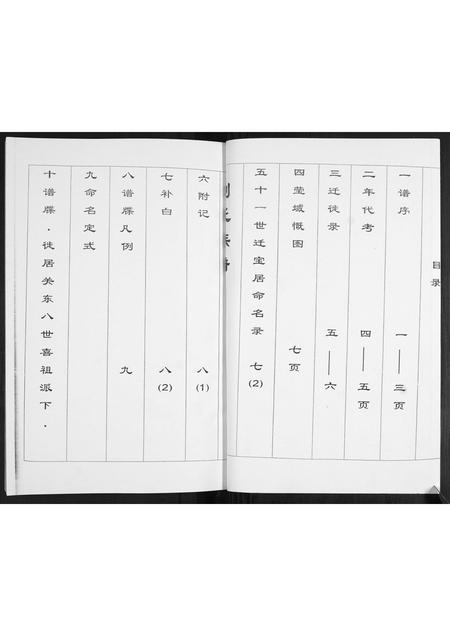 目录
一谱序 一——三页
二年代考 四——五页
三迁徙录 五——六
四莹域慨图 七页
五十一世迁宝居命名录 七(2)
六附记 八(1)
七补白 八(2)
八谱牒凡例 九
九命名定式
十谱牒·徙居关东八世喜祖派下·